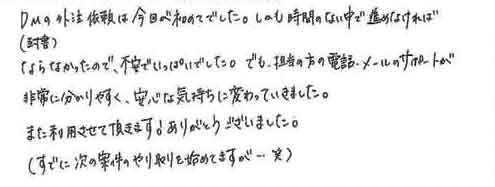 DMの外注依頼は今回が初めてでした。しかも時間のない中で進めなければ
(封書)
ならなかったので、不安でいっぱいでした。でも、担当の方の電話・メールのサポートが
非常に分かりやすく、安心な気持ちに変わっていきました。
また利用させて頂きます。ありがとうございました。
(すでに次の案件のやり取りを始めてますが…笑)